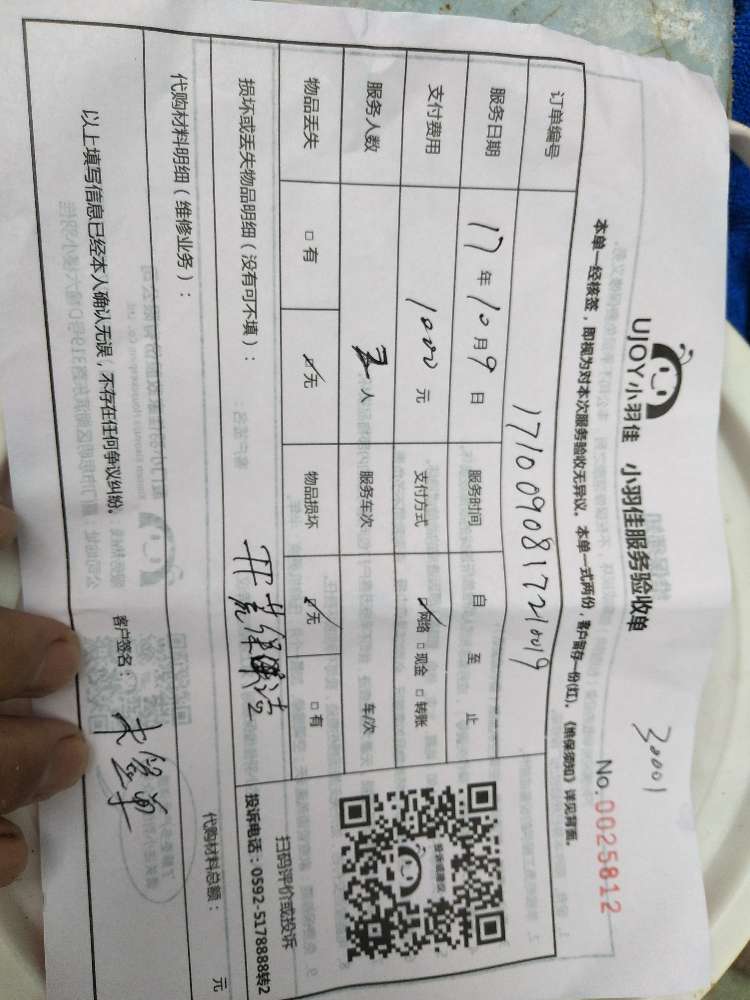 30001
UJOY小羽佳 小羽佳服务验收单
No.0025812
本单一经核签，即视为对本次服务验收无异议。本单一式两份，客户留存一份(红)。《维保须知》详见背面。
订单编号 1710090817210019
服务日期 17年10月9日 服务时间 自 至 止
支付费用 1000元 支付方式 ☑网络 □现金 □转账
服务人数 人 服务车次 车/次
物品丢失 □有 ☑无 物品损坏 ☑无 □有
损坏或丢失物品明细（没有可不填）：
开荒保洁
投诉或建议
扫码评价或投诉
投诉电话：0592-5178888转2
代购材料明细（维修业务）：
代购材料总额： 元
以上填写信息已经本人确认无误，不存在任何争议纠纷。
客户签名：